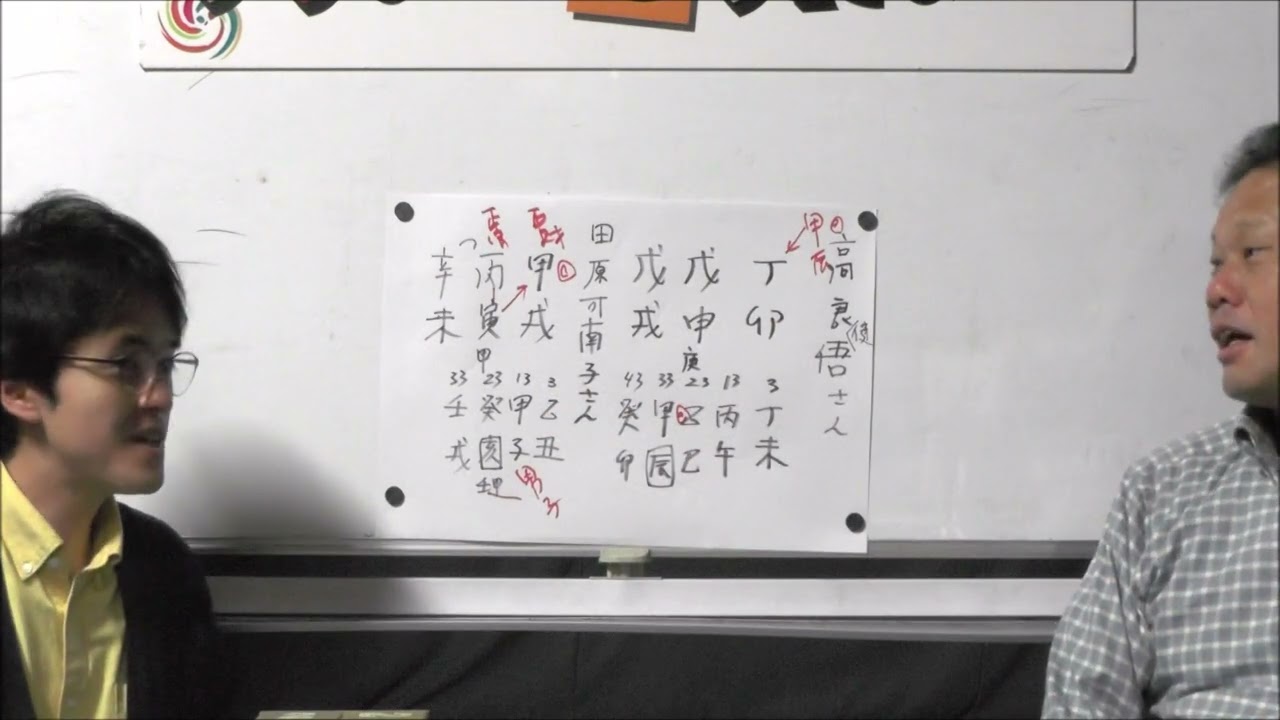 高良悟さん
甲
辰
丁 戊 戊
卯 申 戌
庚
3 13 23 33 43
丁 丙 乙 甲 癸
未 午 巳 辰 卯
田原可南子さん
甲 丙 辛
戌 寅 未
甲
3 13 23 33
乙 甲 癸 壬
丑 子 亥 戌
甲
子